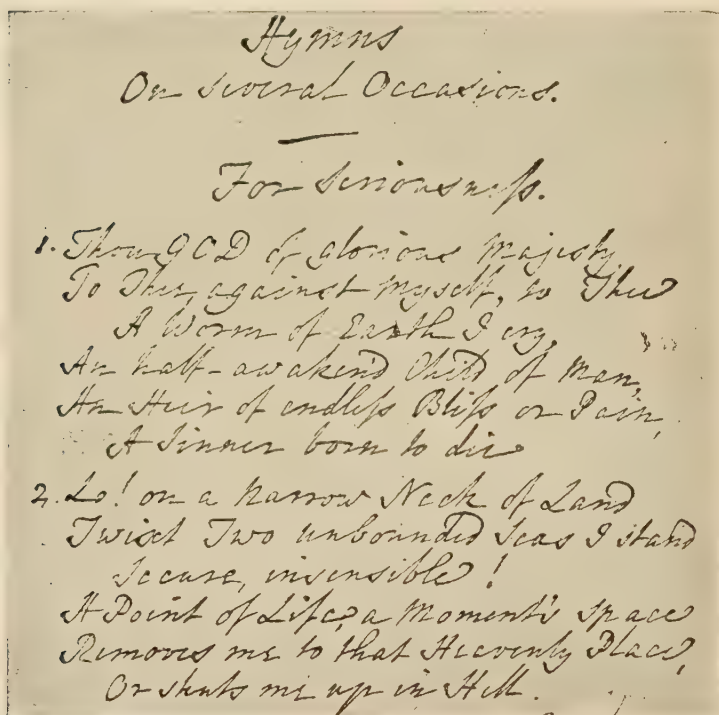 Hymns
On several Occasions.
For seriousness.
1. Thou GOD of glorious Majesty,
To Thee, against myself, to Thee
A Worm of Earth I cry,
An half-awakend Child of man,
An Heir of endless Bliss or Pain,
A Sinner born to die
2. Lo! on a narrow Neck of Land
Twixt Two unbounded seas I stand
Secure, insensible!
A Point of Life, a moment's space
Removes me to that Heavenly Place,
Or shuts me up in Hell.